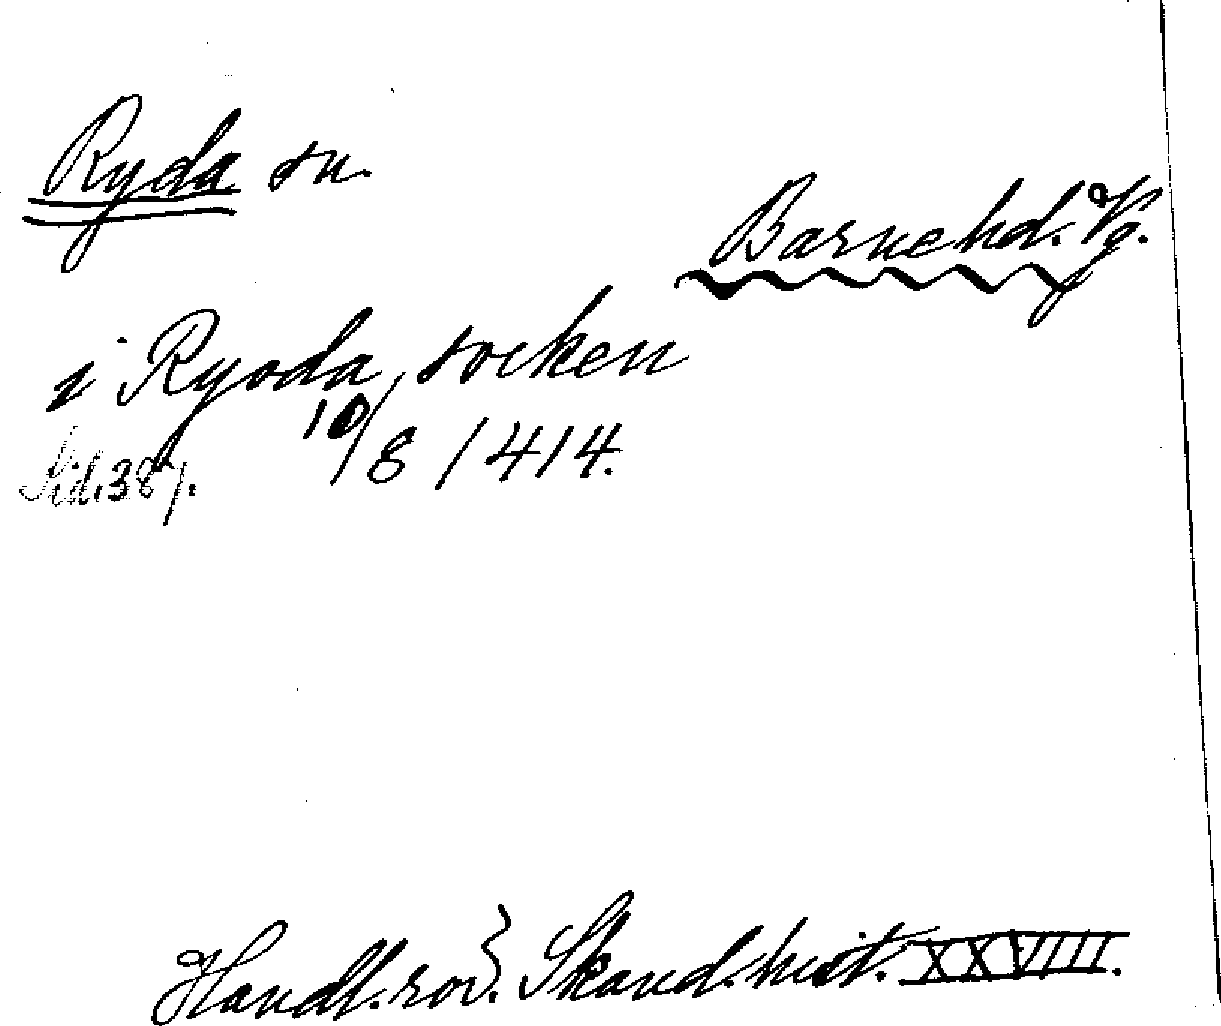 Ryda sn.
Barne hd. Vg.
i Ryoda socken
10/8 1414.
Sid. 387.
Handl. rör. Skand. hist. XXVIII.